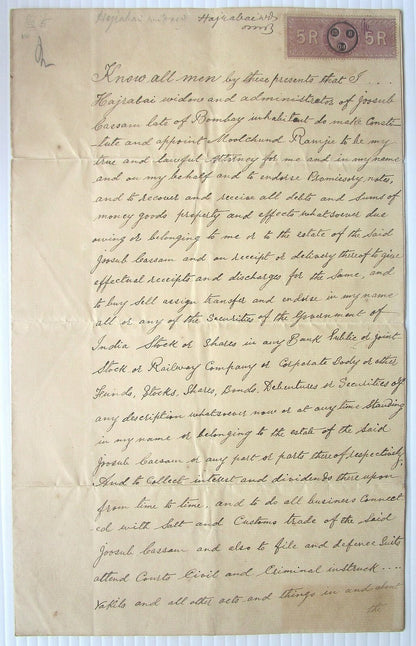 Hajrabai widow
5R 5R
Know all men by these presents that I ....
Hajrabai widow and administrator of Joosub
Cassam late of Bombay inhabitant do make Consti-
tute and appoint Moolchund Ramjee to be my
true and lawful Attorney for me and in my name
and on my behalf and to endorse Promissory notes,
and to recover and receive all debts and sums of
money goods property and effects whatsoever due
owing or belonging to me or to the estate of the said
Joosub Cassam and on receipt or delivery thereof to give
effectual receipts and discharges for the same, and
to buy sell assign transfer and endorse in my name
all or any of the Securities of the Government of
India Stock or Shares in any Bank Public or Joint
Stock or Railway Company or Corporate Body or other
Funds, Stocks, Shares, Bonds, Debentures or Securities of
any description whatsoever now or at any time Standing
in my name or belonging to the estate of the said
Joosub Cassam or any part or parts thereof respectively
And to Collect interest and dividends there upon
from time to time, and to do all business Connect-
ed with Salt and Customs trade of the said
Joosub Cassam and also to file and defence Suits
attend Courts Civil and Criminal instruck ....
Vakils and all other acts and things in and about
the